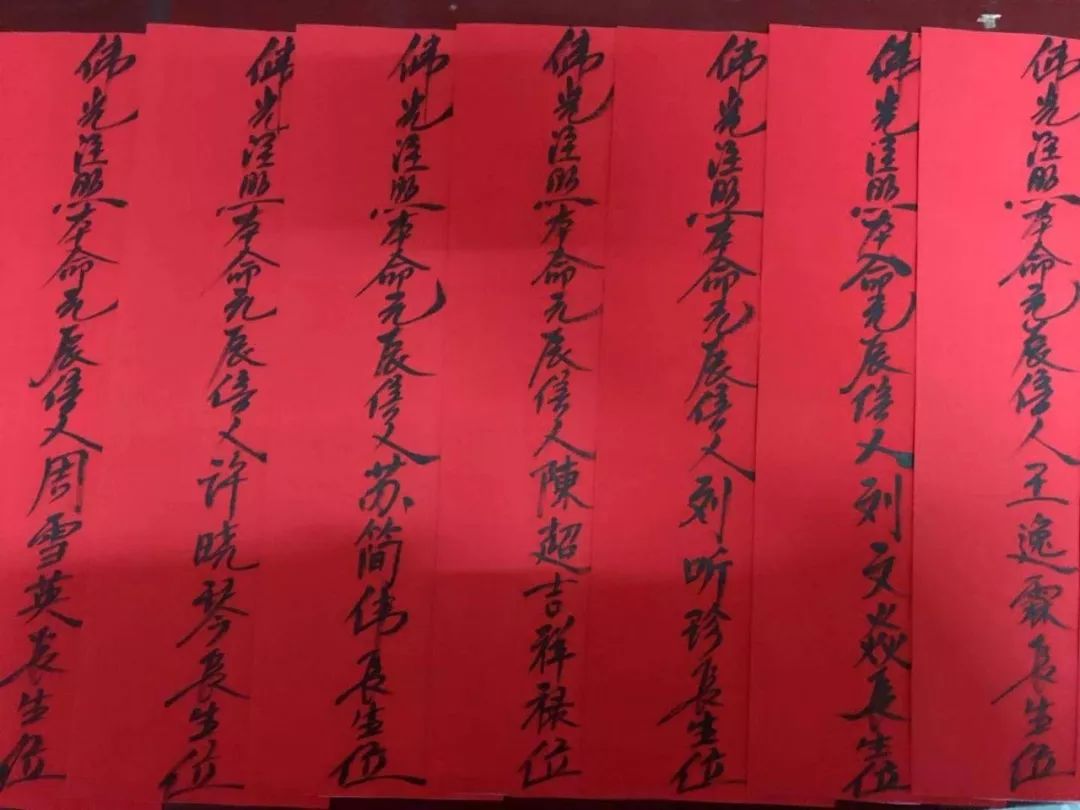 佛光注照本命元辰信人王逸霖长生位
佛光注照本命元辰信人刘文焱长生位
佛光注照本命元辰信人刘听珍长生位
佛光注照本命元辰信人陳超吉祥禄位
佛光注照本命元辰信人苏简伟长生位
佛光注照本命元辰信人许晓琴长生位
佛光注照本命元辰信人周雪英长生位